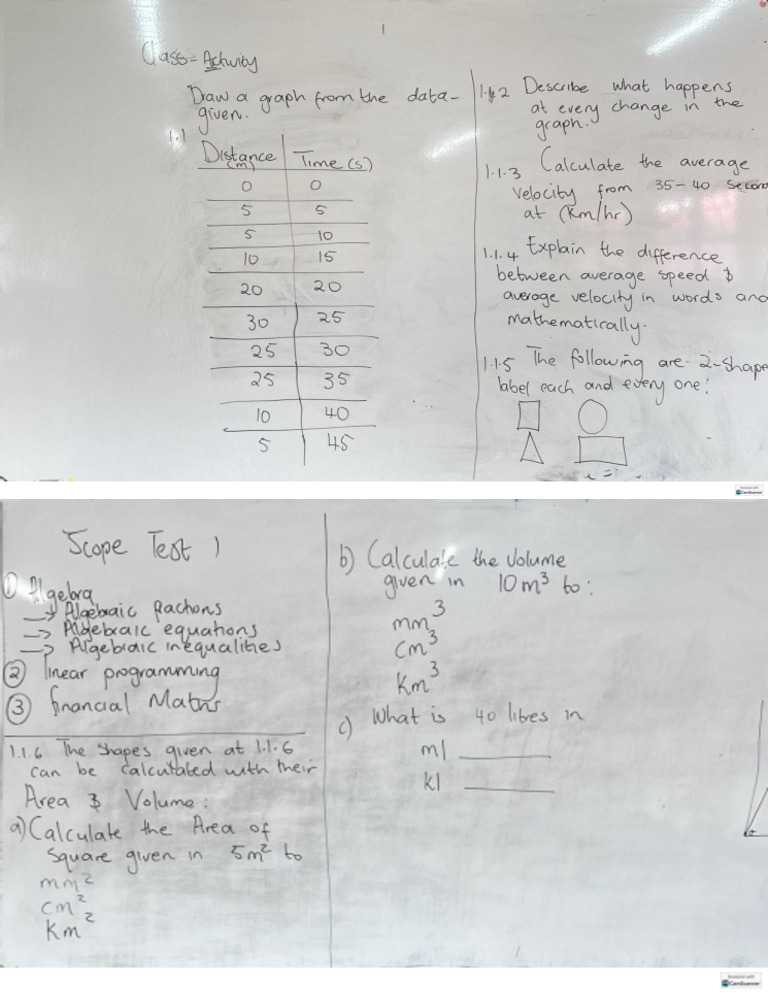 1
Class = Activity
Draw a graph from the data
given.
1.1
Distance (m) Time (s)
0 0
5 5
5 10
10 15
20 20
30 25
25 30
25 35
10 40
5 45
1.1.2 Describe what happens
at every change in the
graph.
1.1.3 Calculate the average
velocity from 35-40 second
at (km/hr)
1.1.4 Explain the difference
between average speed &
average velocity in words and
mathematically.
1.1.5 The following are 2-shape
label each and every one:
Scope Test 1
① Algebra
→ Algebraic
→ Algebraic equations
→ Algebraic inequalities
② linear programming
③ financial Maths
1.1.6 The shapes given at 1.1.6
can be calcutated with their
Area & Volume:
a) Calculate the Area of
square given in 5m² to
mm²
cm²
Km²
b) Calculate the volume
given in 10m³ to:
mm³
cm³
Km³
c) What is 40 litres in
ml ______
kl ______
CamScanner
CamScanner